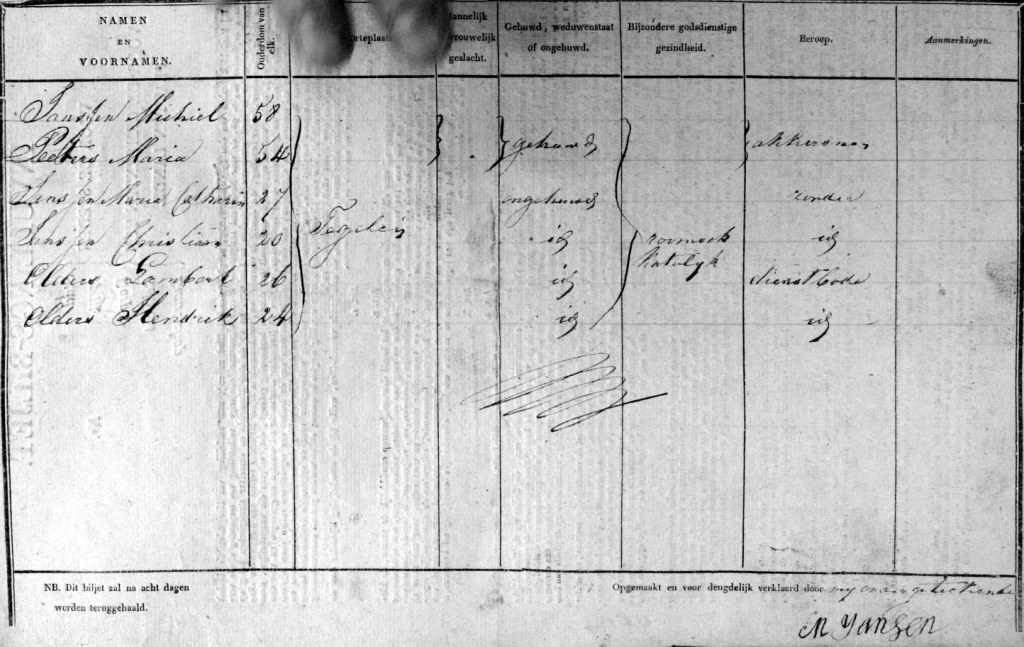 NAMEN EN VOORNAMEN. Ouderdom van elk. Mannelijk vrouwelijk geslacht. Gehuwd, weduwenstaat of ongehuwd. Bijzondere godsdienstige gezindheid. Beroep. Aanmerkingen.
Janssen Michiel 58
Peeters Maria 54 gehuwd
Janssen Maria Catharin 27 ongehuwd zonder
Janssen Christiaan 20 Tegelen id roomsch id
katolyk
Elders Lambert 26 id dienstbode
Elders Hendrik 24 id id
NB. Dit biljet zal na acht dagen
worden teruggehaald.
Opgemaakt en voor deugdelijk verklaard door my
M Jansen